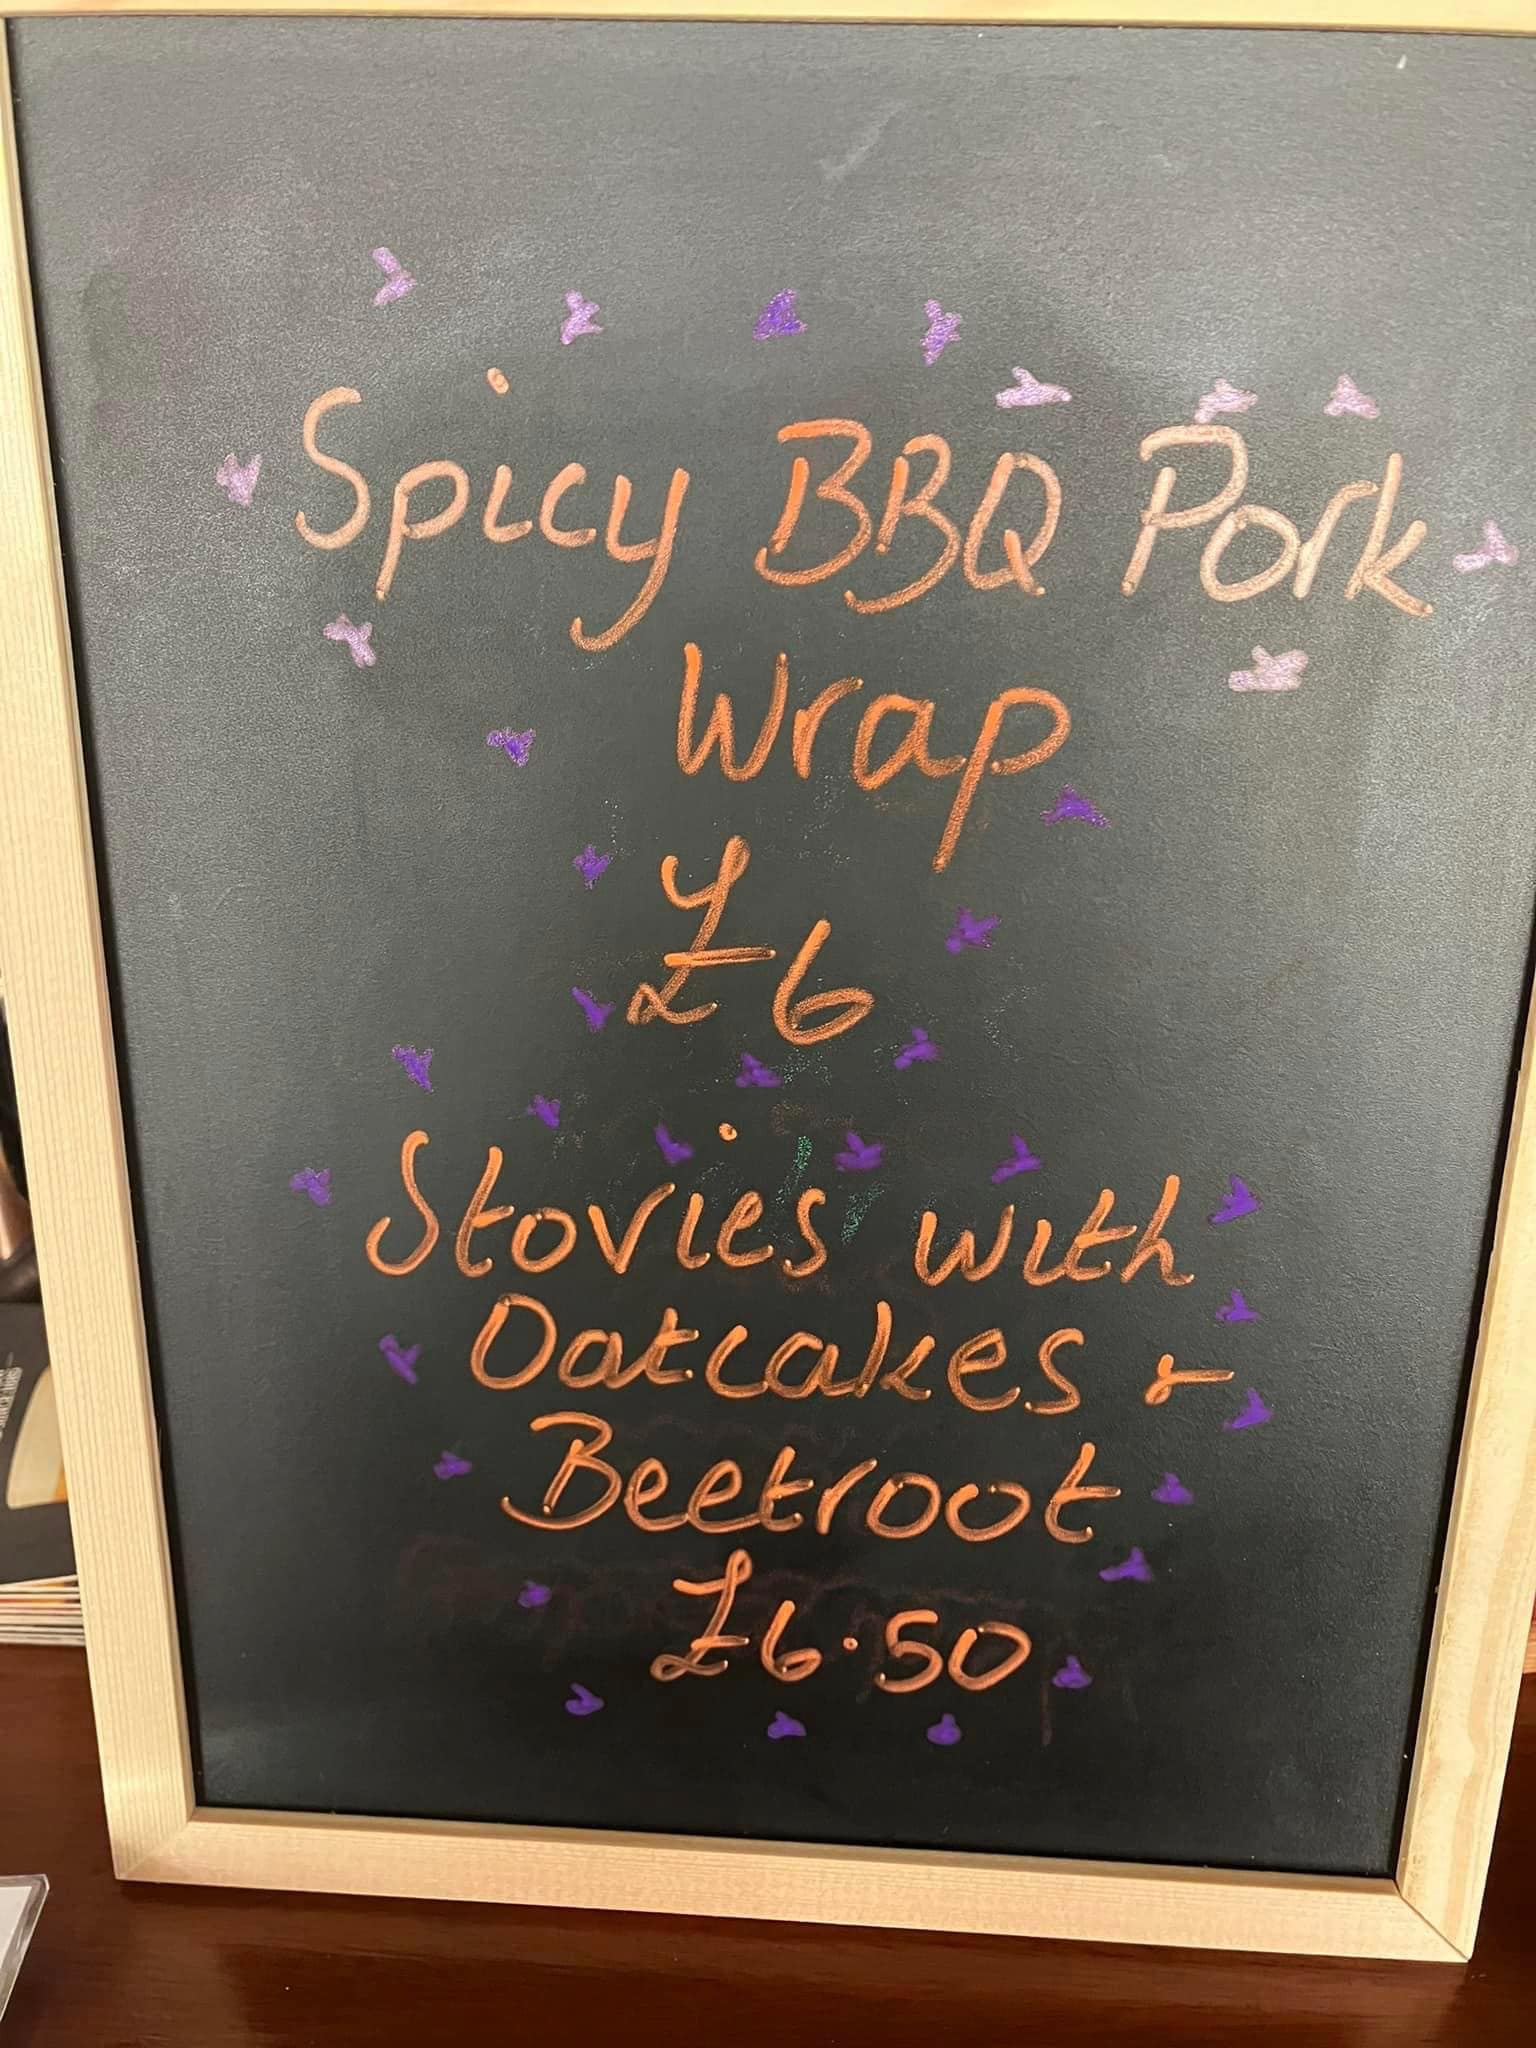 Spicy BBQ Pork
Wrap
£6
Stovies with
Oatcakes &
Beetroot
£6.50